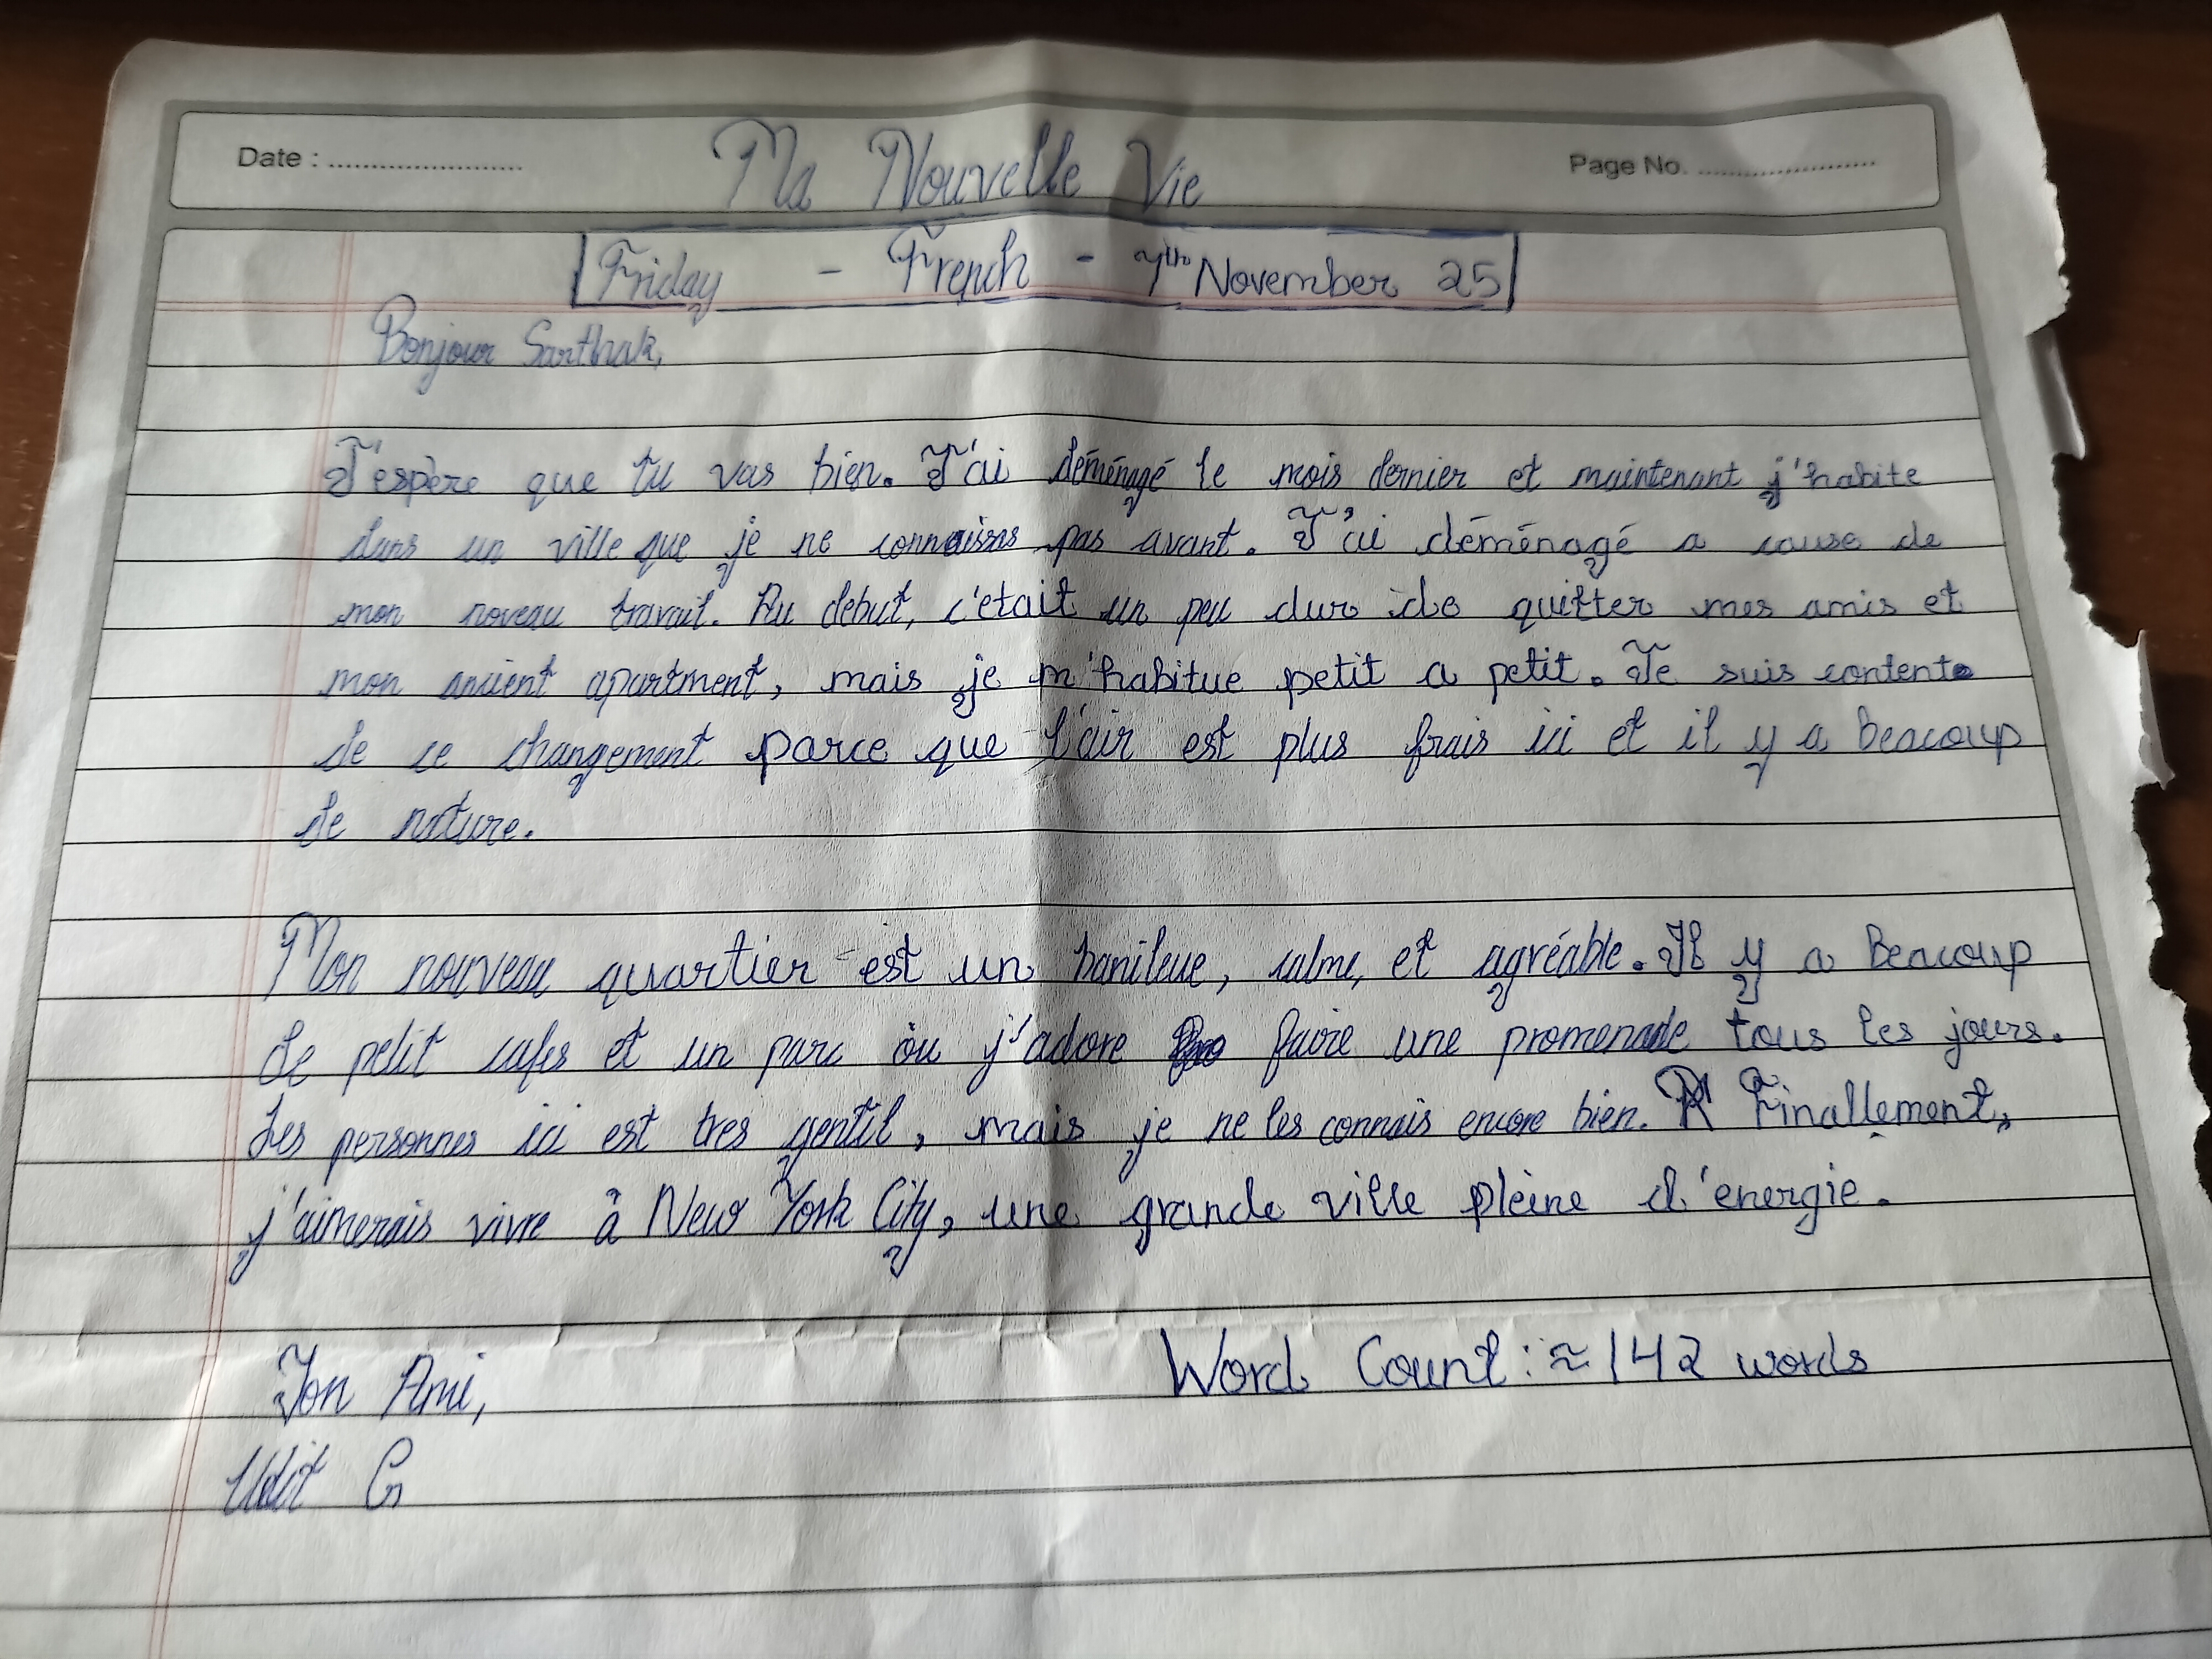 Date : ........................ Ma Nouvelle Vie Page No. ........................
Friday - French - 7th November 25
Bonjour Sarthak,
J'espère que tu vas bien. J'ai déménagé le mois dernier et maintenant j'habite
dans un ville que je ne connaisas pas avant. J'ai déménagé a cause de
mon noveau travail. Au debut, c'etait un peu dur de quitter mes amis et
mon ancient apartment, mais je m'habitue petit a petit. Je suis content
de ce changement parce que l'air est plus frais ici et il y a beacoup
de nature.
Mon nouveau quartier est un banileue, calme, et agréable. Il y a beacoup
de petit cafes et un parc où j'adore faire une promenade tous les jours.
Les personnes ici est tres gentil, mais je ne les connais encore bien. Finallement,
j'aimerais vivre à New York City, une grande ville pleine d'energie.
Ton Ami, Word Count : ≈ 142 words
Udit G